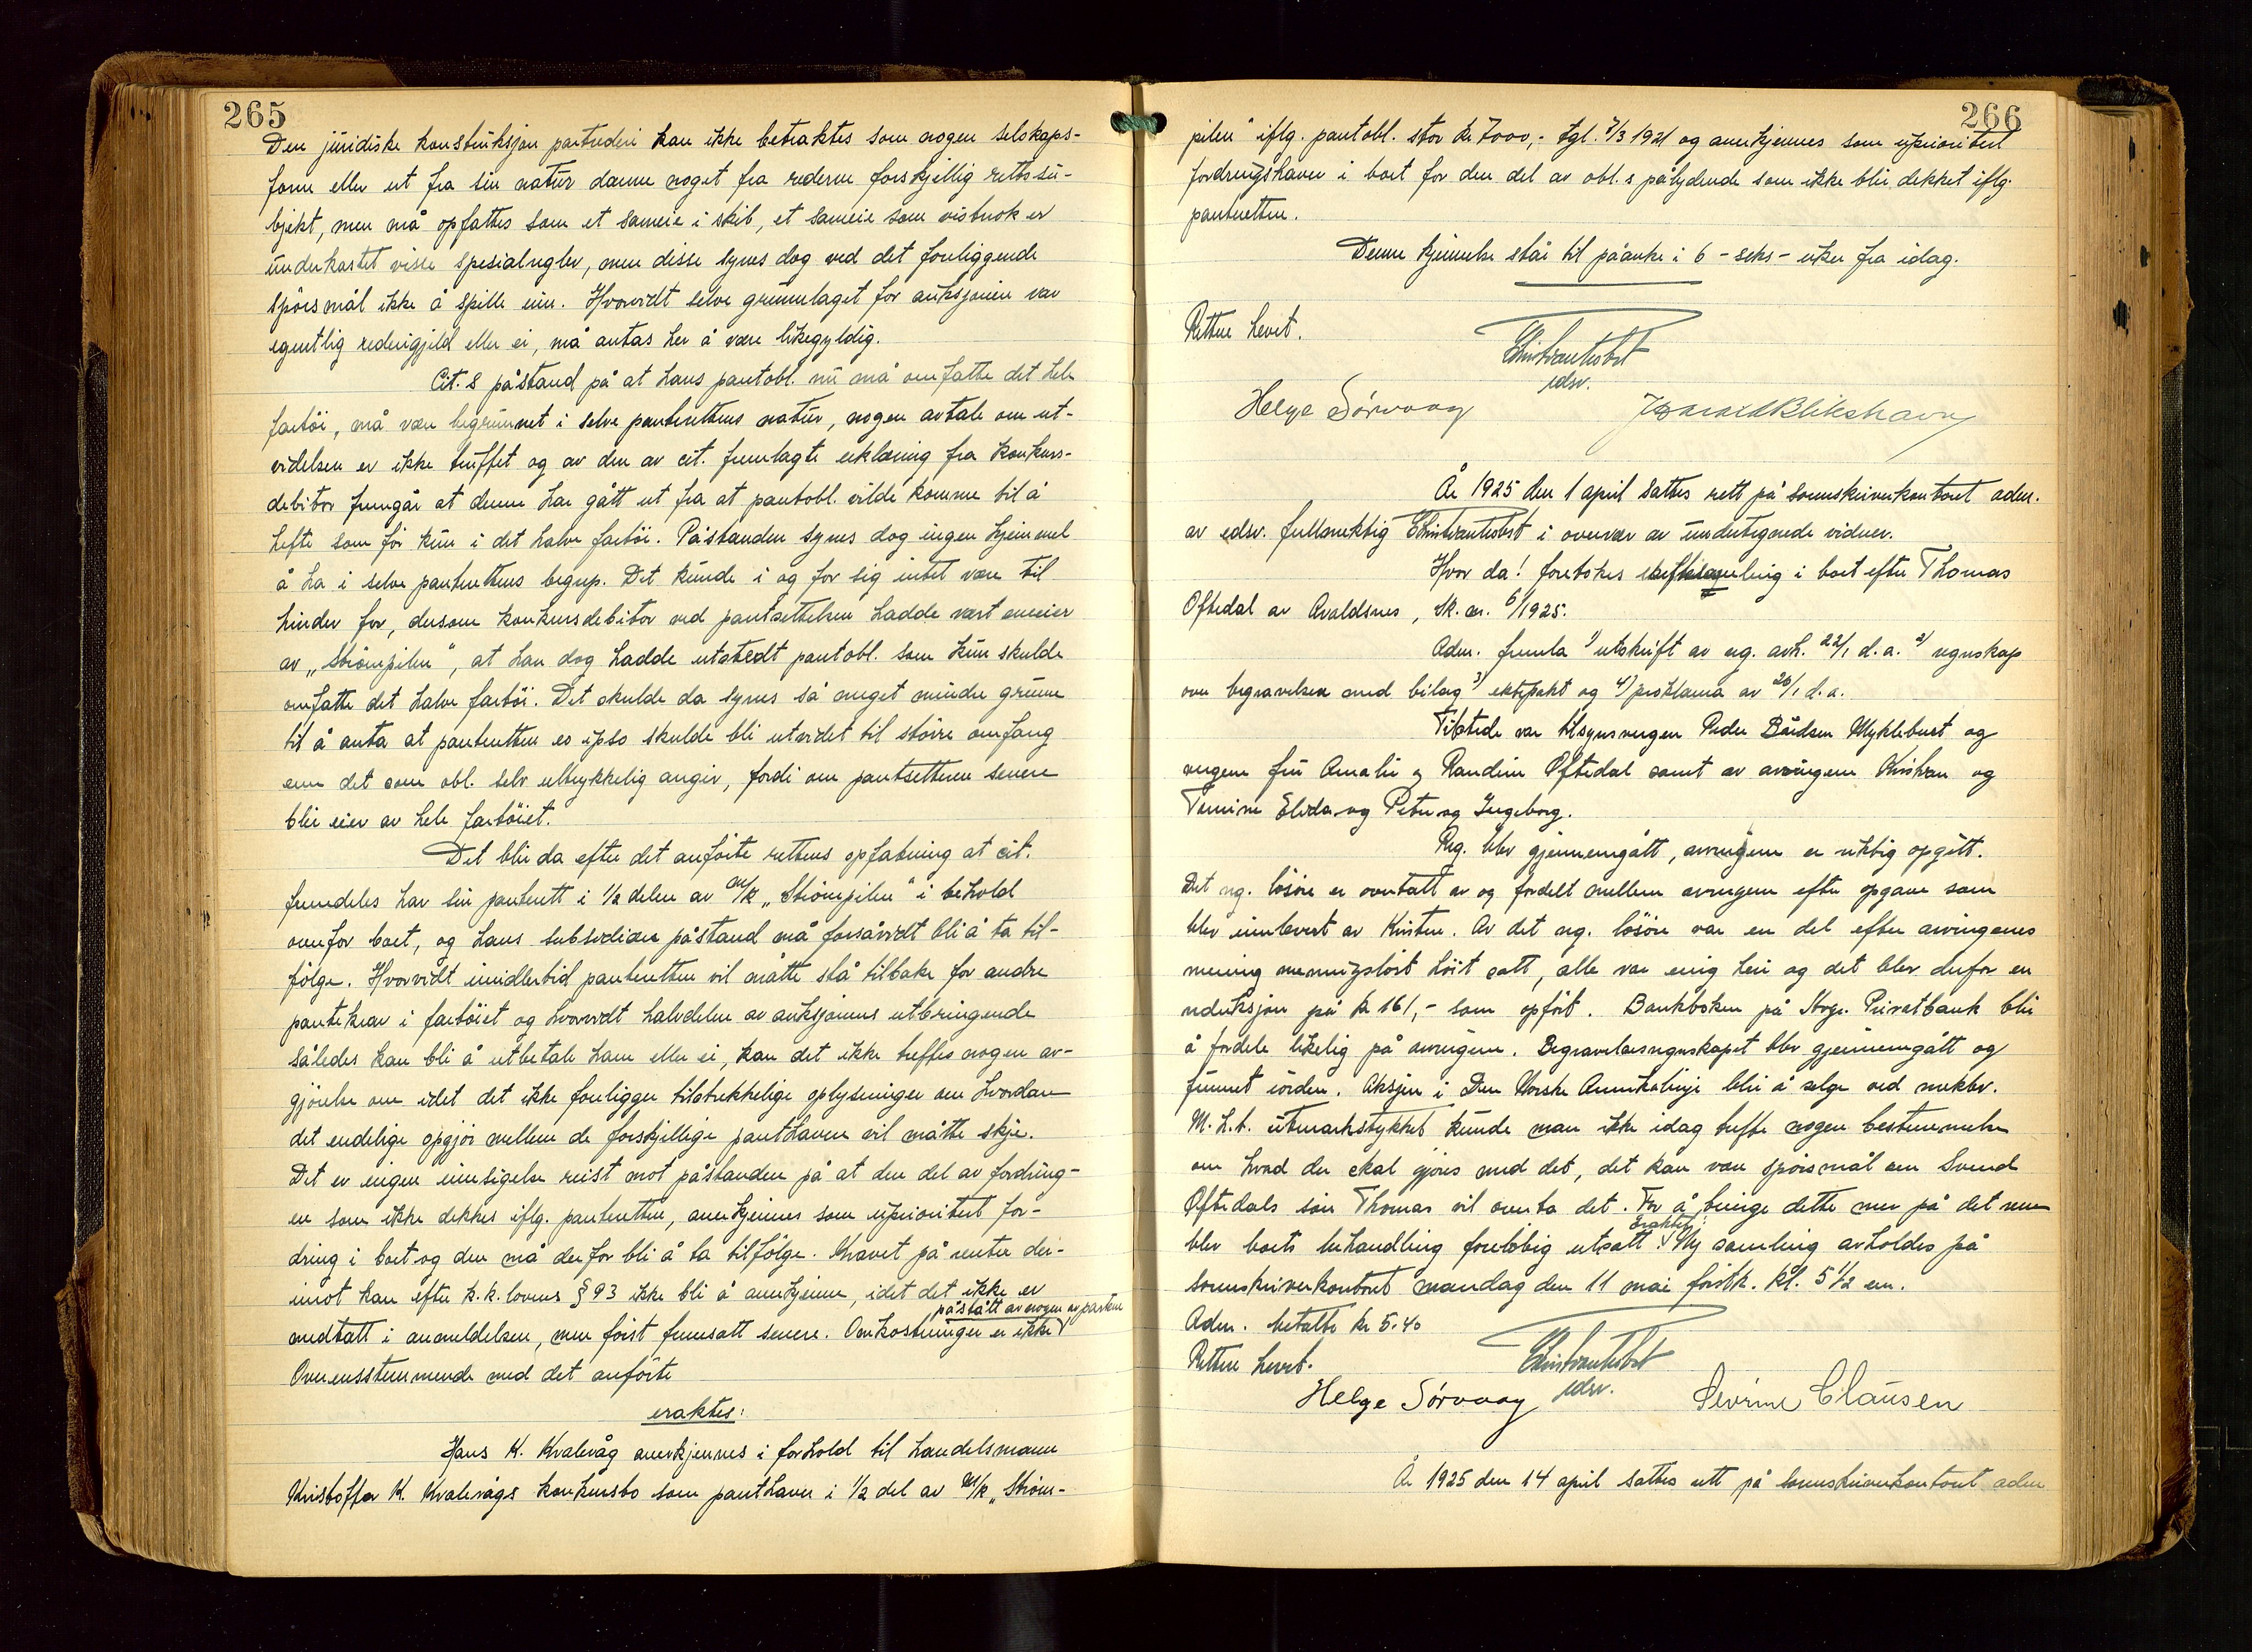 265
Den juridiske konstruksjon partrederi kan ikke betraktes som nogen selskaps-
form eller ut fra sin natur danne noget fra rederne forskjellig rettssu-
bjekt, men må opfattes som et sameie i skib, et sameie som visstnok er
underkastet visse spesialregler, men disse synes dog ved det foreliggende
spörsmål ikke å spille inn. Hvorvidt selve grunnlaget for auksjonen var
egentlig rederigjeld eller ei, må antas her å være likegyldig.
Cit.s påstand på at hans pantobl. nu må omfatte det hele
fartöi, må være begrunnet i selve panterettens natur, nogen avtale om ut-
videlsen er ikke truffet og av den av cit. fremlagte erklæring fra konkurs-
debitor fremgår at denne har gått ut fra at pantobl. vilde komme til å
hefte som för kun i det halve fartöi. Påstanden synes dog ingen hjemmel
å ha i selve panterettens begrep. Det kunde i og for sig intet være til
hinder for, dersom konkursdebitor ved pantsettelsen hadde vært eneeier
av „Strömpilen", at han dog hadde utstedt pantobl. som kun skulde
omfatte det halve fartöi. Det skulde da synes så meget mindre grunn
til å anta at panteretten eo ipso skulde bli utvidet til större omfang
enn det som obl. selv uttrykkelig angir, fordi om pantsetteren senere
blir eier av hele fartöiet.
Det blir da efter det anförte rettens opfatning at cit.
fremdeles har sin panterett i 1/2 delen av M/k „Strömpilen" i behold
overfor boet, og hans subsidiære påstand må forsåvidt bli å ta til-
fölge. Hvorvidt imidlertid panteretten vil måtte stå tilbake for andre
pantekrav i fartöiet og hvorvidt halvdelen av auksjonens utbringende
således kan bli å utbetale ham eller ei, kan det ikke treffes nogen av-
gjörelse om idet det ikke foreligger tilstrekkelige oplysninger om hvordan
det endelige opgjör mellem de forskjellige panthavere vil måtte skje.
Det er ingen innsigelse reist mot påstanden på at den del av fordring-
en som ikke dekkes iflg. panteretten, anerkjennes som uprioritert for-
dring i boet og den må derfor bli å ta tilfölge. Kravet på renter der-
imot kan efter k.k. lovens § 93 ikke bli å anerkjenne, idet det ikke er
påstått av nogen av partene
medtatt i anmeldelsen, men först fremsatt senere. Omkostninger er ikke
Overensstemmende med det anförte
eraktes:
Hans K. Kvalevåg anerkjennes i forhold til handelsmann
Kristoffer K. Kvalevågs konkursbo som panthaver i 1/2 del av M/k „Ström-
266
pilen" iflg. pantobl. stor kr. 7000,- tgl. 7/3 1921 og anerkjennes som uprioritert
fordringshaver i boet for den del av obl.s pålydende som ikke blir dekket iflg.
panteretten.
Denne kjennelse står til påanke i 6 - seks - uker fra idag.
Retten hevet.
edsv.
Helge Sørvaag Harald Blikshavn
År 1925 den 1 april sattes rett på sorenskriverkontoret adm.
av edsv. fullmektig i overvær av undertegnede vidner.
Hvor da! foretokes skiftesamling i boet efter Thomas
Oftedal av Avaldsnes, sk. nr. 6/1925.
Adm. fremla 1) utskrift av reg. avh. 22/1 d.a. 2) regnskap
over begravelsen med bilag 3) ektepakt og 4) proklama av 26/1 d.a.
Tilstede var tilsynsvergen Peder Bårdsen Myklebust og
vergene fru Amalie og Randine Oftedal samt av arvingene Kristian og
Tomine Elida og Peter og Ingeborg.
Reg. blev gjennemgått, arvingene er riktig opgitt.
Det reg. lösöre er overtatt av og fordelt mellem arvingene efter opgave som
blev innlevert av Kristian. Av det reg. lösöre var en del efter arvingenes
mening meningslöst höit satt, alle var enig heri og det blev derfor en
reduksjon på kr 161,- som opfört. Bankboken på Haug. Privatbank blir
å fordele likelig på arvingene. Begravelsesregnskapet blev gjennemgått og
funnet iorden. Aksjen i Den Norske Amerikalinje blir å selge ved mekler.
M.h.t. utmarkstykket kunde man ikke idag treffe nogen bestemmelse
om hvad der skal gjöres med det, det kan være spörsmål om Svend
Oftedals sön Thomas vil overta det. For å bringe dette mer på det rene
eraktet:
blev boets behandling forelöbig utsatt. Ny samling avholdes på
sorenskriverkontoret mandag den 11 mai förstk. kl. 5 1/2 em.
Adm. betalte kr 5.40
Retten hevet.
edsv.
Helge Sørvaag Sevrine Clausen
År 1925 den 14 april sattes rett på sorenskriverkontoret adm